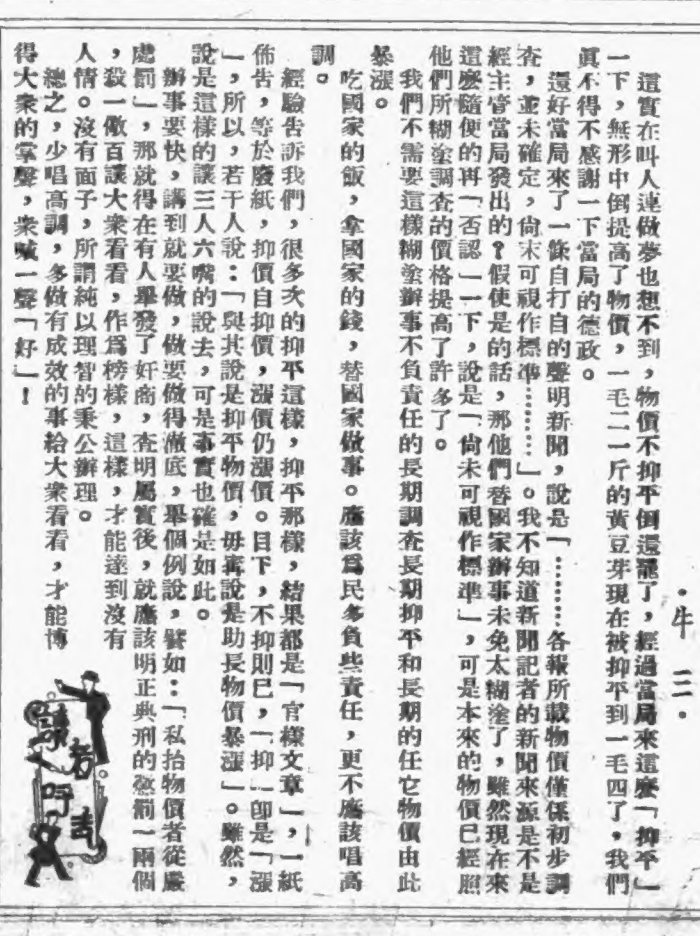 ·牛三·
這實在叫人連做夢也想不到,物價不抑平倒還罷了,經過當局來這麽「抑平」
一下,無形中倒提高了物價,一毛二一斤的黃豆芽現在被抑平到一毛四了,我們
眞不得不感謝一下當局的德政。
還好當局來了一條自打自的聲明新聞,說是「………各報所載物價僅係初步調
查,並未確定,尙末可視作標準………」。我不知道新聞記者的新聞來源是不是
經主管當局發出的?假使是的話,那他們替國家辦事未免太糊塗了,雖然現在來
這麽隨便的再「否認」一下,說是「尙未可視作標準」,可是本來的物價已經照
他們所糊塗調查的價格提高了許多了。
我們不需要這樣糊塗辦事不負責任的長期調查長期抑平和長期的任它物價由此
暴漲。
吃國家的飯,拿國家的錢,替國家做事。應該爲民多負些責任,更不應該唱高
調。
經驗告訴我們,很多次的抑平這樣,抑平那樣,結果都是「官樣文章」,一紙
佈告,等於廢紙,抑價自抑價,漲價仍漲價。目下,不抑則巳,一抑一卽是「漲
」,所以,若干人說:「與其說是抑平物價,毋寗說是助長物價暴漲」。雖然,
說是這樣的讓三人六嘴的說去,可是事實也確是如此。
辦事要快,講到就要做,做要做得澈底,舉個例說,譬如:「私抬物價者從嚴
處罰」,那就得在有人舉發了奸商,查明屬實後,就應該明正典刑的懲罰一兩個
,殺一儆百讓大衆看看,作爲榜樣,這樣,才能達到沒有
人情。沒有面子,所謂純以理智的秉公辦理。
總之,少唱高調,多做有成效的事給大衆看看,才能博
得大衆的掌聲,衆喊一聲「好」!
讀者呼声